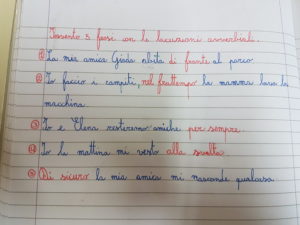 Invento 5 frasi con le locuzioni avverbiali.
① La mia amica Giada abita di fronte al parco.
② Io faccio i compiti, nel frattempo la mamma lava la
macchina.
③ Io e Elena resteremo amiche per sempre.
④ Io la mattina mi vesto alla svelta.
⑤ Di sicuro la mia amica mi nasconde qualcosa.